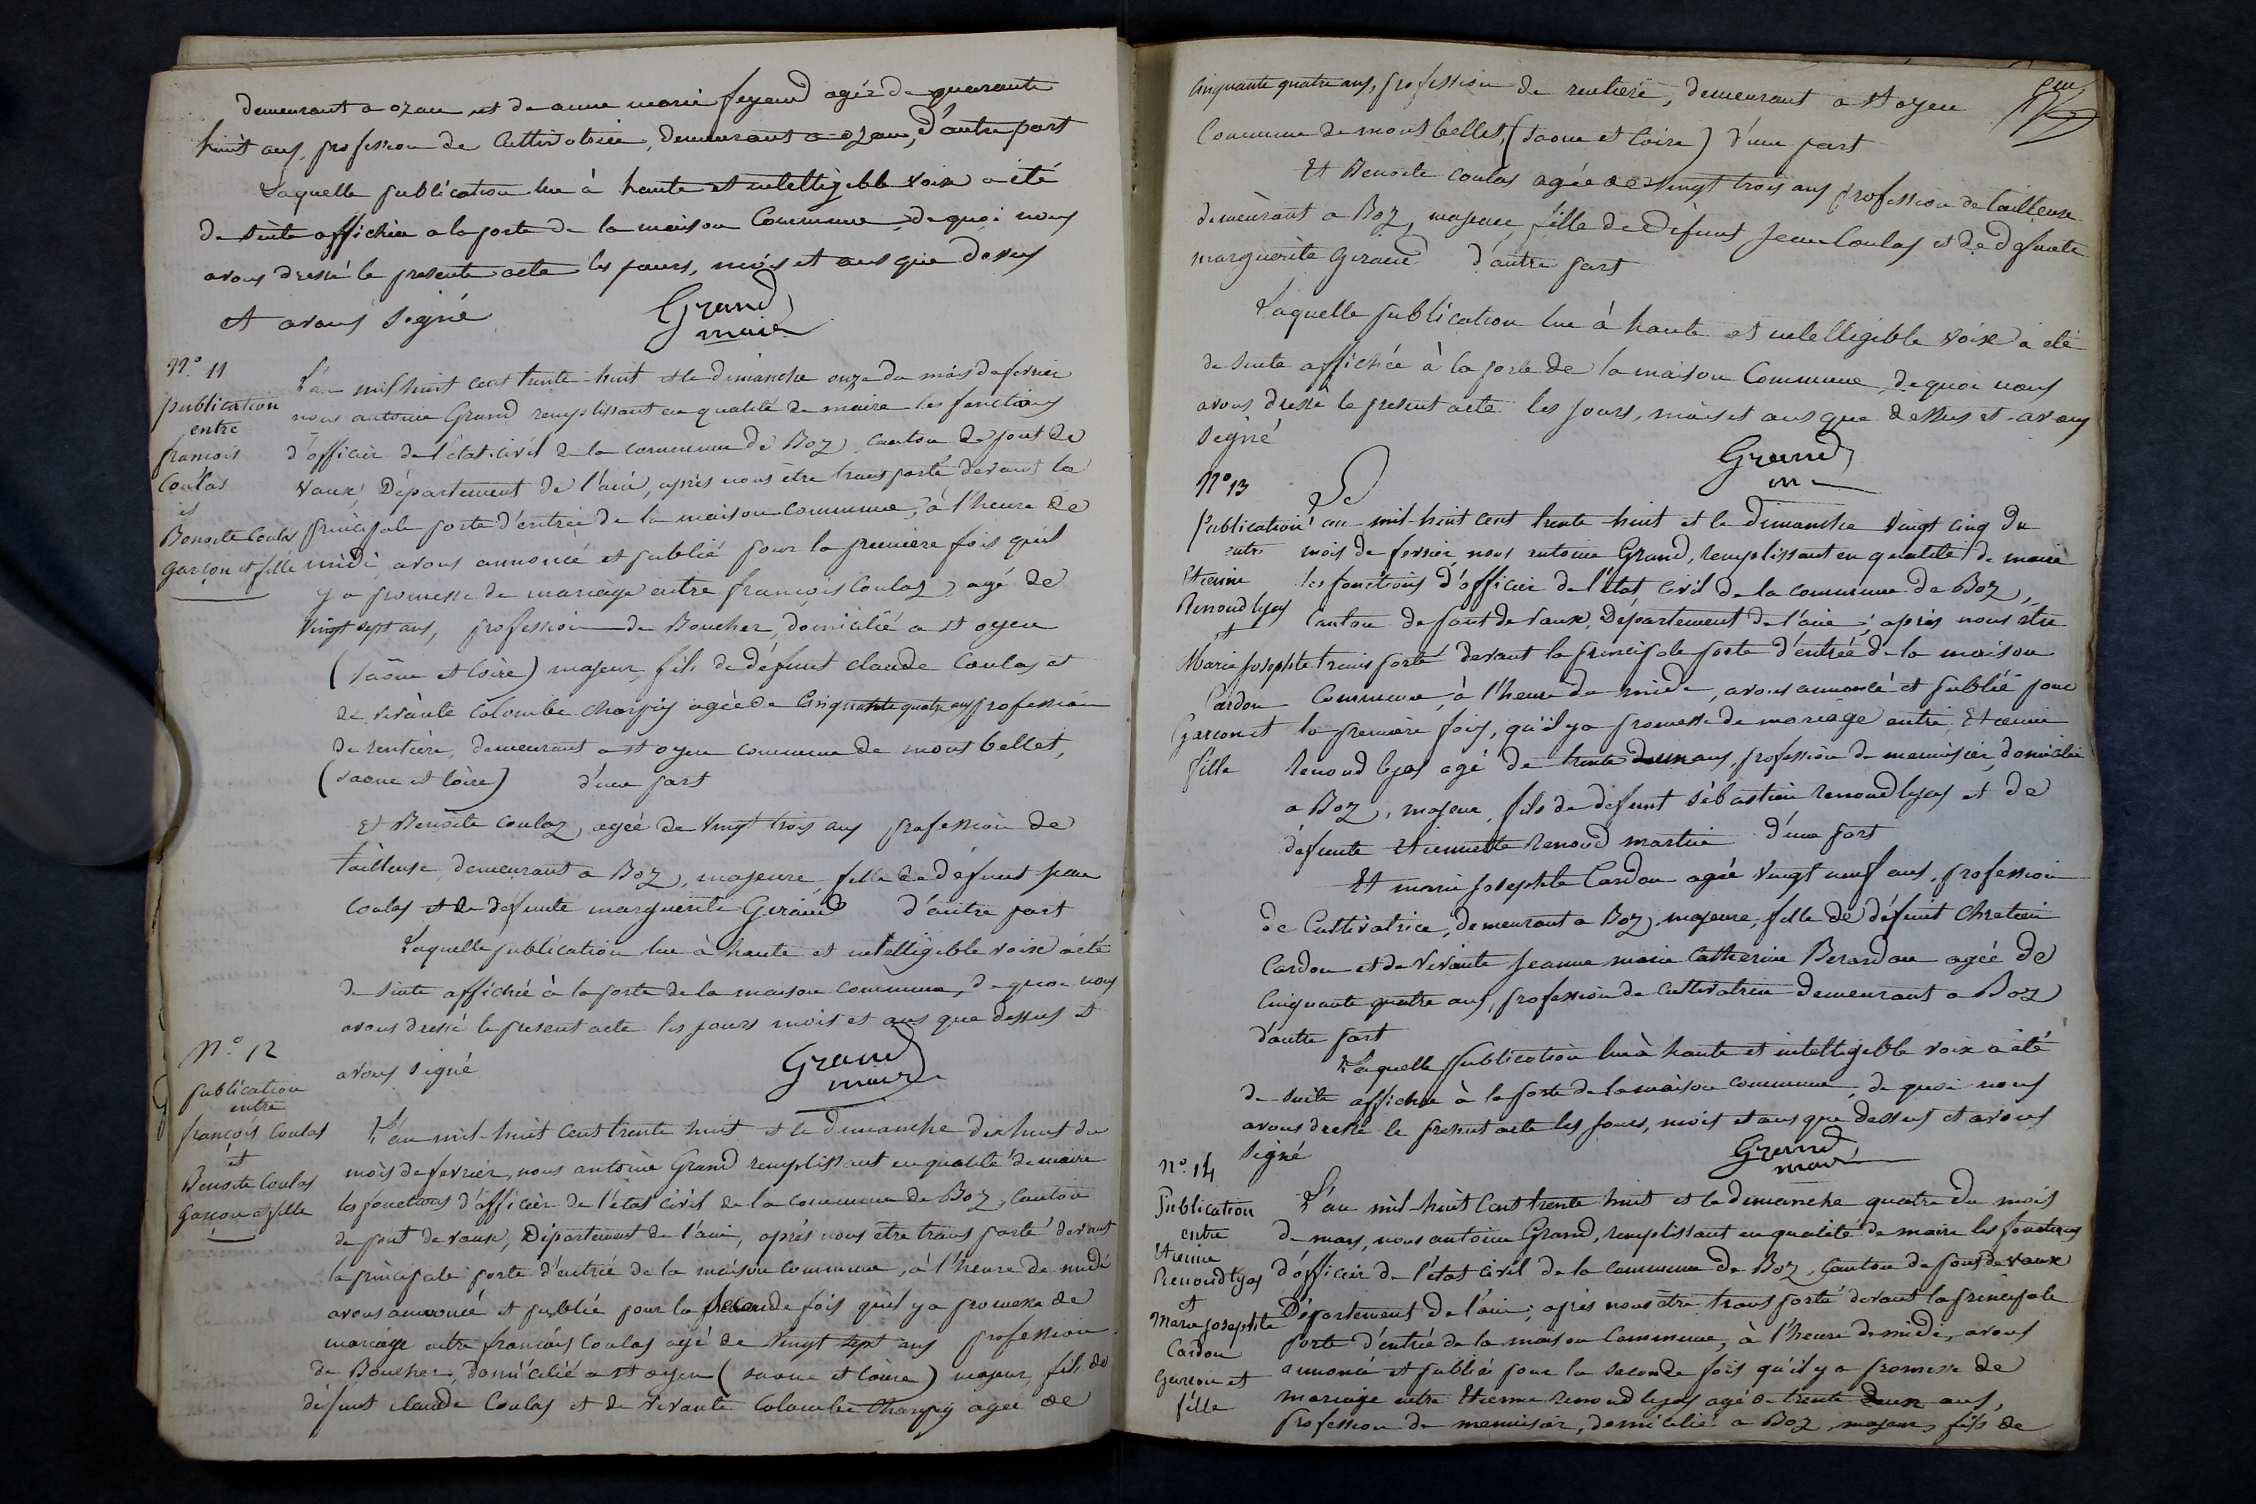 demeurant a ozan et de anne marie feyeud agée de quarante
huit ans, profession de Cultivatrice, demeurant a ozan, d'autre part
Laquelle publication lue à haute et intelligible voix a été
de suite affichée a la porte de la maison Commune, de quoi nous
avons dressé le presente acte les jours, mois et ans que dessus
et avons signé
Grand
maire
N.° 11
publication
entre
françois
Coulas
et
Benoite Coulas
garçon et fille
L'an mil huit cent trente-huit et le dimanche onze du mois de fevrier
nous antoine Grand remplissant en qualité de maire les fonctions
d'officier de l'état-civil de la commune de Boz, canton de pont de
Vaux, Département de l'ain, après nous être transporté devant la
principale porte d'entrée de la maison commune, à l'heure de
midi, avons annoncé et publié pour la première fois qu'il
y a promesse de mariage entre françois Coulas, agé de
Vingt sept ans, profession de Boucher, domicilié a st oyen
(saône et Loire) majeur, fils de défunt claude Coulas et
de vivante Colombe Charpy agée de Cinquante quatre ans profession
de rentière, demeurant a st oyen commune de mont bellet,
(saone et loire) d'une part
Et Benoite Coulaz, agée de Vingt trois ans profession de
tailleuse, demeurant a Boz, majeure, fille de défunt jean
Coulas et de defunte marguerite Giraud d'autre part
Laquelle publication lue à haute et intelligible voix a été
de suite affichée à la porte de la maison commune, de quoi nous
avons dressé le present acte les jours mois et ans que dessus et
avons signé
Grand
maire
N.° 12
publication
entre
françois Coulas
et
Benoite Coulas
Garçon et fille
L'an mil-huit cent trente huit et le Dimanche dix huit du
mois de fevrier, nous antoine Grand remplissant en qualité de maire
les fonctions d'officier de l'état civil de la commune de Boz, canton
de pont de vaux, Département de l'ain, après nous être transporté devant
la principale porte d'entrée de la maison commune, à l'heure de midi
avons annoncé et publié pour la seconde fois qu'il y a promesse de
mariage entre françois Coulas agé de Vingt sept ans profession
de Boucher, domicilié a st oyen (saone et Loire) majeur, fils de
défunt claude Coulas et de Vivante Colombe Charpy agée de
Cinquante quatre ans, profession de rentière, demeurant a st oyen
Commune de mont bellet, (saone et Loire) d'une part
Et Benoite Coulas agée de Vingt trois ans profession de tailleuse
demeurant a Boz, majeure, fille de défunt jean Coulas et de defunte
marguerite Giraud d'autre part
Laquelle publication lue à haute et intelligible voix a été
de suite affichée à la porte de la maison Commune, de quoi nous
avons dressé le present acte les jours, mois et ans que dessus et avons
signé
Grand
N° 13
Publication
entre
Etienne
Renoud lyas
et
Marie Josephte
Cardon
Garçon et
fille
L'an mil-huit cent trente-huit et le Dimanche Vingt cinq du
mois de fevrier nous antoine Grand, remplissant en qualité de maire
les fonctions d'officier de l'état civil de la commune de Boz,
Canton de pont de vaux, Département de l'ain, après nous être
transporté devant la principale porte d'entrée de la maison
Commune, à l'heure de midi, avons annoncé et publié pour
la première fois, qu'il y a promesse de mariage entre Etienne
Renoud lyas agé de trente ans, profession de menuisier, domicilié
a Boz, majeur, fils de defunt sébastien Renoud lyas et de
défunte Etiennette Renoud martin d'une part
Et marie josephte Cardon agée Vingt neuf ans, profession
de Cultivatrice, demeurant a Boz, majeure, fille de défunt Chretien
Cardon et de Vivante jeanne marie Catherine Berardan agée de
Cinquante quatre ans, profession de Cultivatrice demeurant a Boz
d'autre part
Laquelle publication lue à haute et intelligible voix a été
de suite affichée à la porte de la maison commune, de quoi nous
avons dressé le présent acte les jours, mois et ans que dessus et avons
signé
Grand
maire
N.° 14
Publication
entre
Etienne
Renoud lyas
et
Marie Josephte
Cardon
Garçon et
fille
L'an mil-huit Cent trente huit et le dimanche quatre du mois
de mars, nous antoine Grand, remplissant en qualité de maire les fonctions
d'officier de l'état civil de la commune de Boz, Canton de pont de vaux
Département de l'ain; après nous être transporté devant la principale
porte d'entrée de la maison Commune, à l'heure de midi, avons
annoncé et publié pour la seconde fois qu'il y a promesse de
mariage entre Etienne Renoud lyas agé de trente deux ans,
profession de menuisier, domicilié a Boz, majeur, fils de